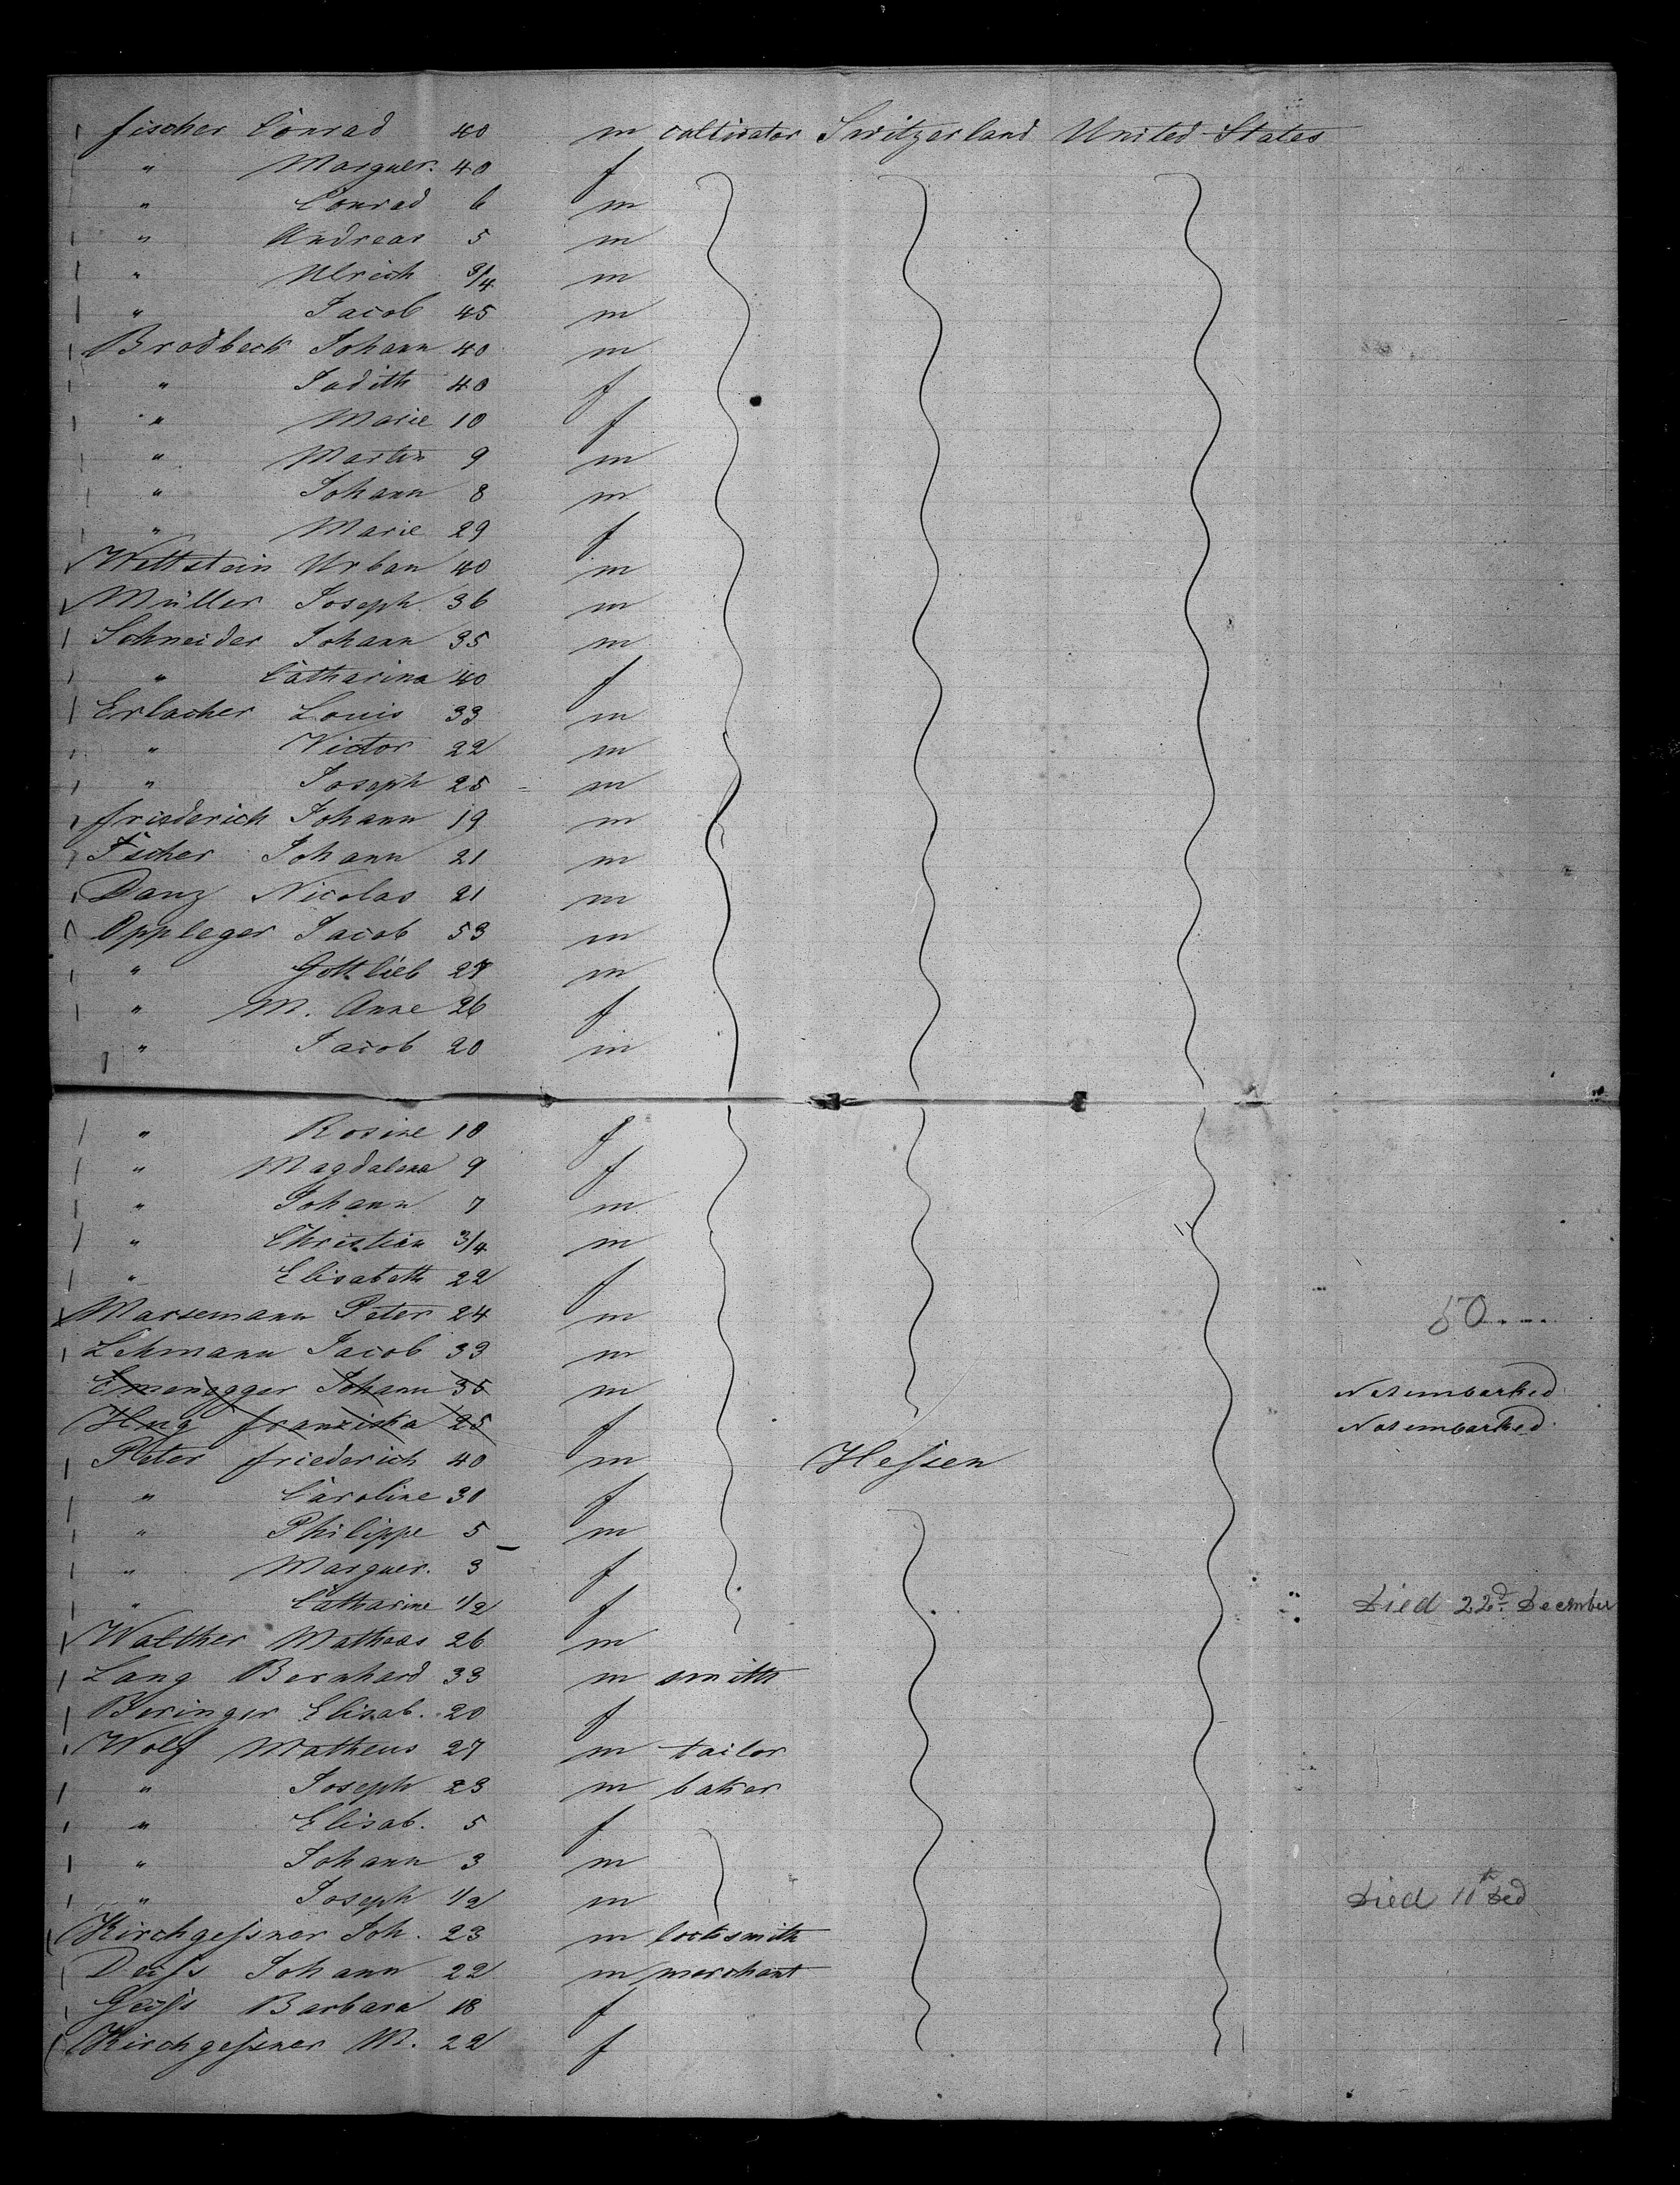 Fischer Conrad 40 m cultivator Switzerland United States
" Marguer. 40 f
" Conrad 6 m
" Andreas 5 m
" Ulrich 3/4 m
" Jacob 45 m
Brodbeck Johann 40 m
" Judith 40 f
" Marie 10 f
" Martin 9 m
" Johann 8 m
" Marie 29 f
Wettstein Urban 40 m
Müller Joseph 36 m
Schneider Johann 35 m
" Catharina 40 f
Erlacher Louis 33 m
" Victor 22 m
" Joseph 25 m
Friederich Johann 19 m
Johann 21 m
Danz Nicolas 21 m
Oppleger Jacob 53 m
" Gottlieb 27 m
" M. Anne 26 f
" Jacob 20 m
" Rosine 10 f
" Magdalena 9 f
" Johann 7 m
" Christian 3/4 m
" Elisabeth 22 f
Marsemann Peter 24 m 50
Lehmann Jacob 33 m
Emenegger Johann 35 m Not embarked
Hug Franziska 25 f Not embarked
Peter Friederich 40 m Heſsen
" Caroline 30 f
" Philippe 5 m
" Marguer. 3 f
" Catharine 1/2 f Died 22d December
Walther Matheas 26 m
Lang Bernhard 33 m smith
Beringer Elisab. 20 f
Wolf Matheus 27 m tailor
" Joseph 23 m baker
" Elisab. 5 f
" Johann 3 m
" Joseph 1/2 m Died 10th
Kirchgeſsner Joh. 23 m locksmith
Deiſs Johann 22 m merchant
Geiſs Barbara 18 f
Kirchgeſsner M. 22 f